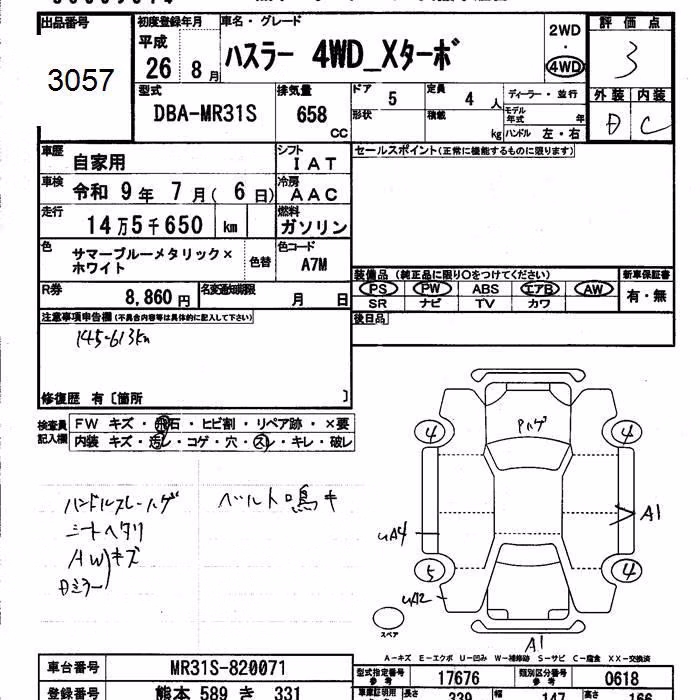 出品番号
3057
初度登録年月
平成
26 8月
車名・グレード
ハスラー 4WD_Xターボ
2WD
・
4WD
評価点
3
外装 内装
D C
型式
DBA-MR31S
排気量
658
CC
ドア
5
定員
4 人
形状
積載
kg
ディーラー・並行
モデル年式 年
ハンドル 左・右
車歴
自家用
車検
令和 9年 7月( 6日)
走行
14万5千650 km
シフト
IAT
冷房
AAC
燃料
ガソリン
色
サマーブルーメタリック×
ホワイト
色替
色コード
A7M
R券
8,860円
名変通知期限
月 日
セールスポイント(正常に機能するものに限ります)
装備品 (純正品に限り○をつけてください)
PS PW ABS エアB AW
SR ナビ TV カワ
新車保証書
有・無
後日品
注意事項申告欄(不具合内容等は具体的に記入して下さい)
145-613km
修復歴 有〔箇所 〕
検査員
記入欄
FW キズ・飛石・ヒビ割・リペア跡・×要
内装 キズ・汚レ・コゲ・穴・スレ・キレ・破レ
ハンドルスレ・ハゲ
シートヘタリ
AW
キズ
Dミラー
ベルト鳴キ
Pハゲ
4
4
A1
uA4
5
4
uA2
スペア
A1
A-キズ E-エクボ U-凹み W-補修跡 S-サビ C-腐食 XX-交換済
車台番号
MR31S-820071
登録番号
熊本 589 き 331
型式指定番号
参考
17676
類別区分番号
参考
0618
車庫証明用
長さ 339 幅 147 高さ 166